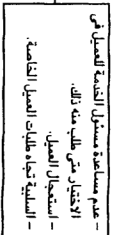 - عدم مساعدة مسئول الخدمة للعميل فى
الاختيار متى طلب منه ذلك.
- استعجال العميل.
- السلبية تجاه طلبات العميل الخاصة.